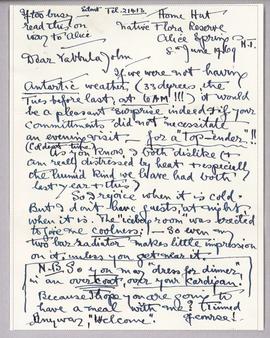 If too busy
read this on
way to Alice
Tel. 21413
Home Hut
Native Flora Reserve
Alice Spring
N.T.
5th June 1969
Dear Yabbula John
If we were not having
Antartic weather, (33 degrees the
Tues before last, at 6AM!!!) it would
be a pleasant surprise indeed if your
commitments did not "necessitate"
an evening visit - for a "Top-ender"!!
(Coldest time)
As you know, I both dislike &
am really distressed by heat & especially
the humid kind we have had both
last year & this)
So I rejoice when it is cold
But I don't have guests, at night
when it is. The " room" was erected
to give me coolness; - So even my
two bar radiator makes little impression
on it, unless you get near it.
N.B. So you may "dress for dinner"
in an overcoat, over your cardigan.
Because I hope you are going to
have a meal with me? tinned
of course!
Anyway, "Welcome"